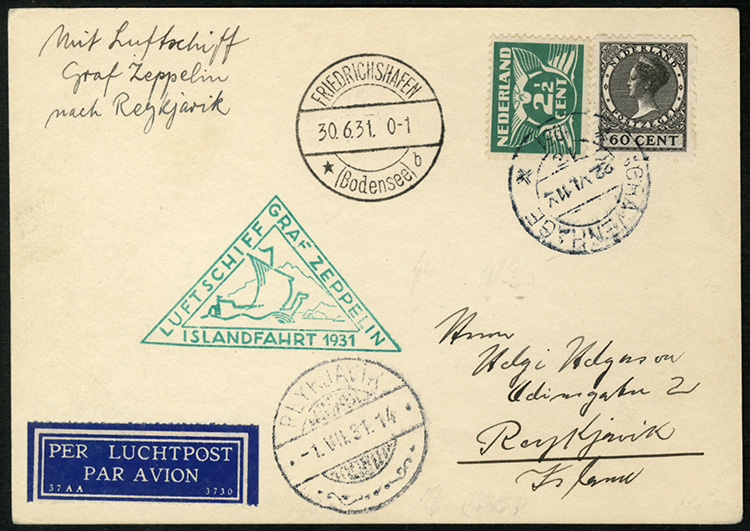 Mit Luftschiff
Graf Zeppelin
nach Reykjavik
FRIEDRICHSHAFEN
30.6.31. 0-1
* (Bodensee) b
NEDERLAND
2½
CENT
NEDERLAND
POSTZEGEL
60 CENT
'S GRAVENHAGE
LUFTSCHIFF GRAF ZEPPELIN
ISLANDFAHRT 1931
REYKJAVIK
-1.VII.31.14
Herrn
Helgi Helgason
Odinsgatu 2
Reykjavik
Island
PER LUCHTPOST
PAR AVION
37AA 3730